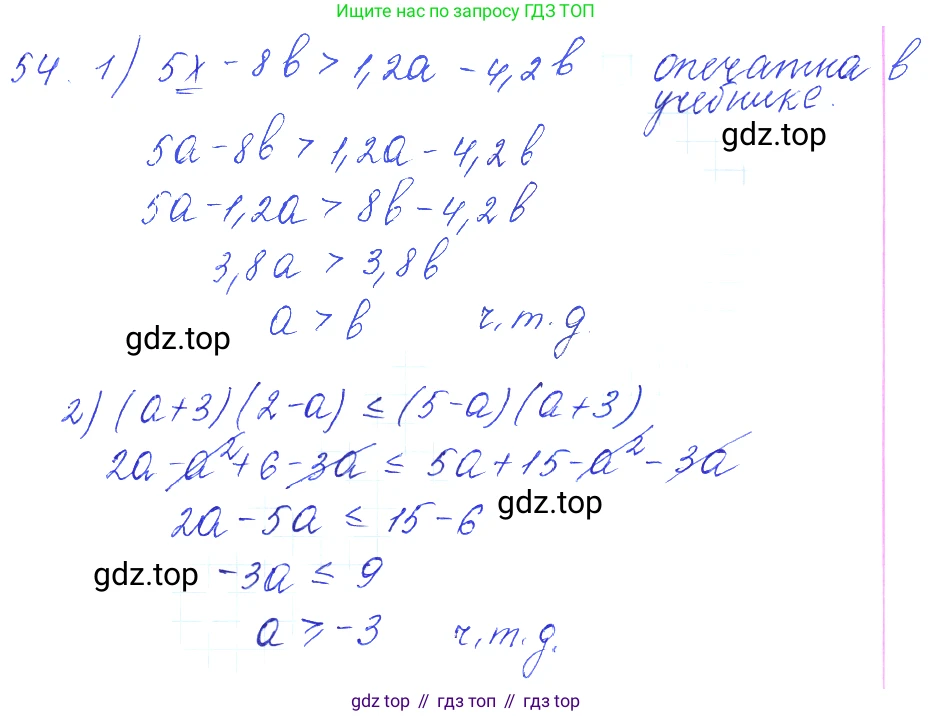 Ищите нас по запросу ГДЗ ТОП
54. 1) 5x - 8b > 1,2a - 4,2b опечатка в
учебнике.
gdz.top
5a - 8b > 1,2a - 4,2b
5a - 1,2a > 8b - 4,2b
3,8a > 3,8b
a > b ч.т.д.
gdz.top
2) (a+3)(2-a) ≤ (5-a)(a+3)
2a - a² + 6 - 3a ≤ 5a + 15 - a² - 3a
2a - 5a ≤ 15 - 6
gdz.top
gdz.top
-3a ≤ 9
a ≥ -3 ч.т.д.
gdz top // гдз топ // gdz top